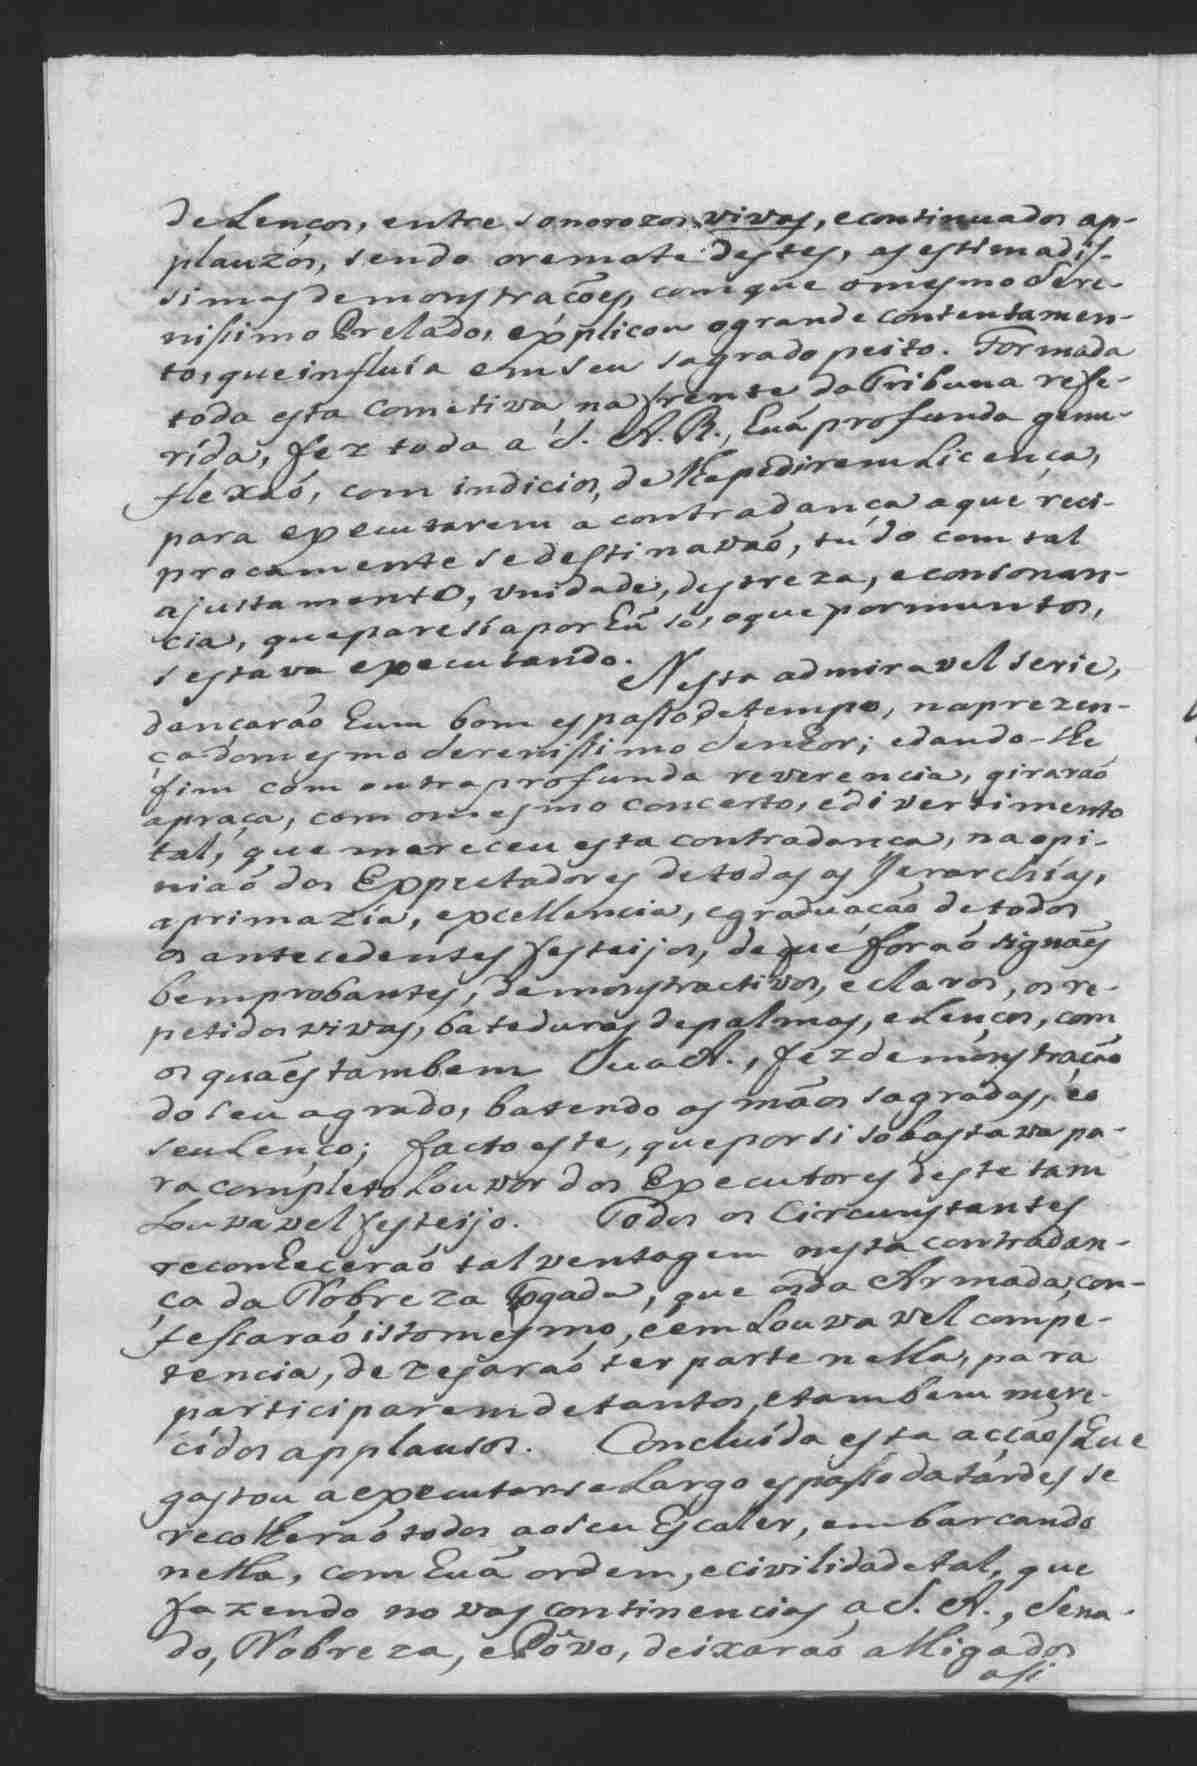 de Lenços, entre sonorozos vivas, e continuados ap-
plauzos, sendo o remate destes, as estimadis-
simas demonstraçoẽs, com que o mesmo Sere-
nissimo Prelado, explicou o grande contentamen-
to, que influía em seu sagrado peito. Formada
toda esta cometiva na frente da Tribuna refe-
rída, fez toda a S. A. R., huá profunda genu-
flexaó, com indicios, de lhe pedirem Licença,
para executarem a contradança a que reci-
procamente se destinavaó, tudo com tal
ajustamento, unidade, destreza, e consonan-
cia, que paresía por hũ só, o que por muntos,
s estava executando. Nesta admiravel serie,
dançarão hum bom espasso de tempo, na prezen-
ça do mesmo Serenissimo Senhor; e dando-lhe
fim com outra profunda reverencia, giraraó
a praça, com o mesmo concerto, e divertimento
tal, que mereceu esta contradança, na opi-
niaó dos Expectadores de todas as Jerarchías,
a primazía, excellencia, e graduação de todos
os antecedentes festeijos, de que foraó signaẽs
bem probantes, demonstractivos, e claros, os re-
petidos vivas, bateduras de palmas, e Lenços, com
os quaẽs tambem Sua A., fez demonstração
do seu agrado, batendo as mãos sagradas, e o
seu Lenço; facto este, que por si só bastava pa-
ra completo Louvor dos Executores deste tam
Louvavel festeijo. Todos os Circunstantes
reconheceraó tal ventagem nesta contradan-
ça da Nobreza Togada, que os da Armada, con-
fessaraó isto mesmo, e em Louvavel compe-
tencia, dezejaraó ter parte nella, para
participarem de tantos, e tambem mere-
cidos applausos. Concluída esta acção / que
gastou a executarse Largo espasso da tarde / se
recolheraó todos ao seu Escaler, embarcando
nella, com huã ordem, e civilidade tal, que
fazendo novas continencias a S. A., Sena-
do, Nobreza, e Povo, deixaraó alligados
asi